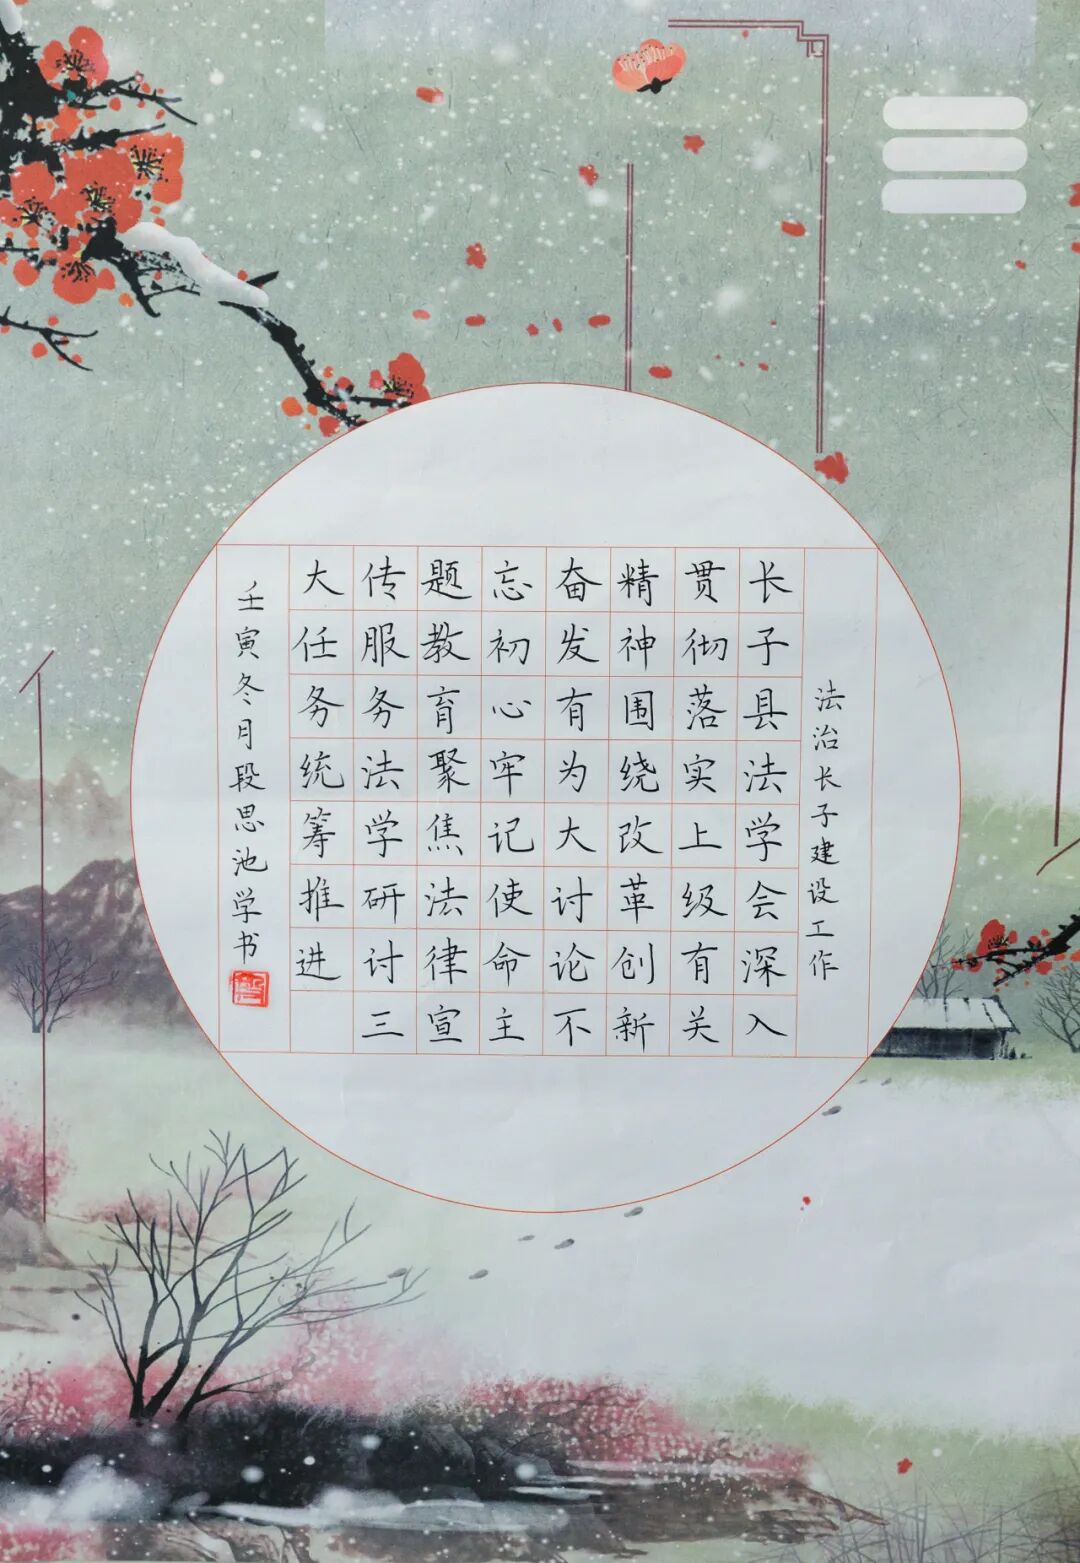 法治长子建设工作
长子县法学会深入
贯彻落实上级有关
精神围绕改革创新
奋发有为大讨论不
忘初心牢记使命主
题教育聚焦法律宣
传服务法学研讨三
大任务统筹推进
壬寅冬月段思池学书